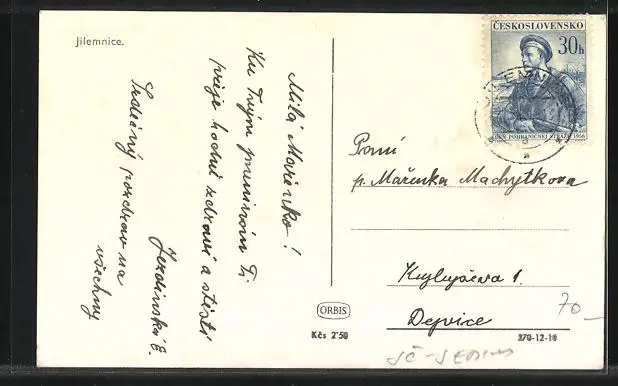 Jilemnice.
Milá Mařenko!
Ku Tvým jmeninám Ti
přeje hodně zdraví a štěstí
Jezdinská E.
Srdečný pozdrav na
všechny
ČESKOSLOVENSKO
30h
DEN POHRANIČNEJ STRÁŽE 1956
Paní
p. Mařenka Machytkova
1.
Dejvice
70_
ORBIS
Kčs 2'50
279-12-16